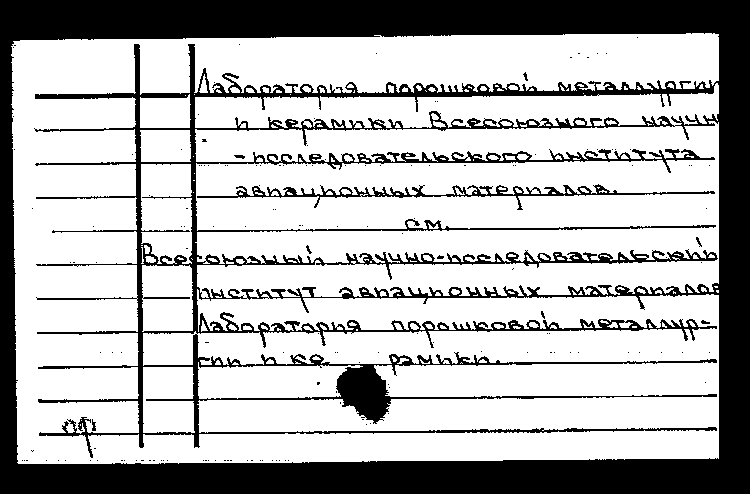 Лаборатория порошковой металлургии
и керамики Всесоюзного научн
-исследовательского института
авиационных материалов.
см.
Всесоюзный научно-исследовательский
институт авиационных материалов
Лаборатория порошковой металлур-
гии и ке рамики.
пф